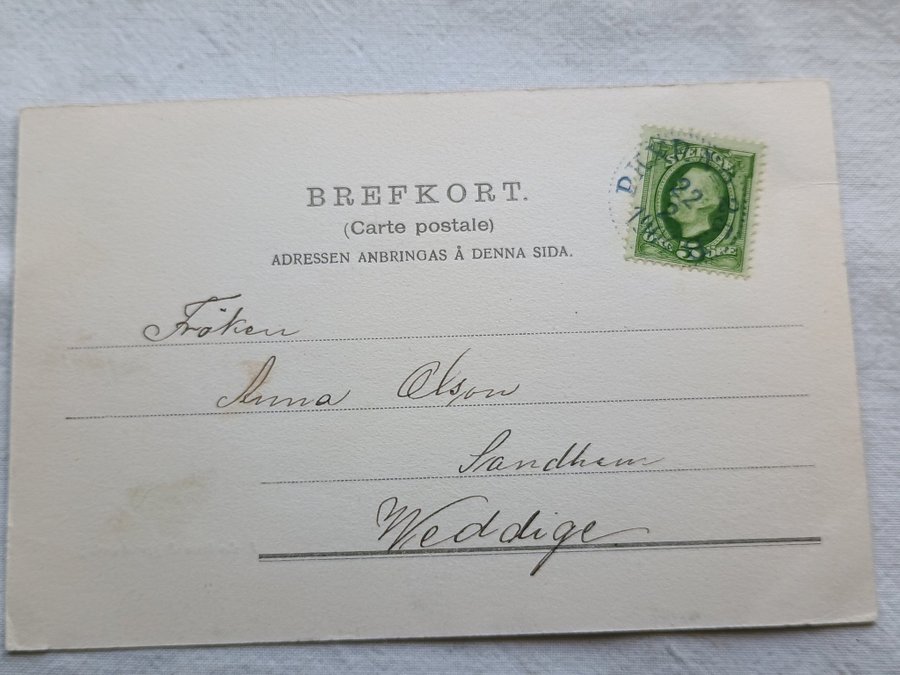 BREFKORT.
(Carte postale)
ADRESSEN ANBRINGAS Å DENNA SIDA.
SVERIGE
22
5 ÖRE
Fröken
Anna Olson
Sandhem
Weddige